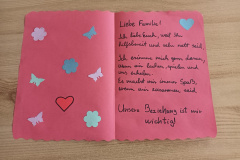 Liebe Familie!
Ich liebe euch, weil ihr
hilfsbereit und sehr nett seid.
Ich erinnere mich gern daran,
wenn wir lachen, spielen und
uns erholen.
Es macht mir immer Spaß,
wenn wir zusammen sind.
Unsere Beziehung ist mir
wichtig!